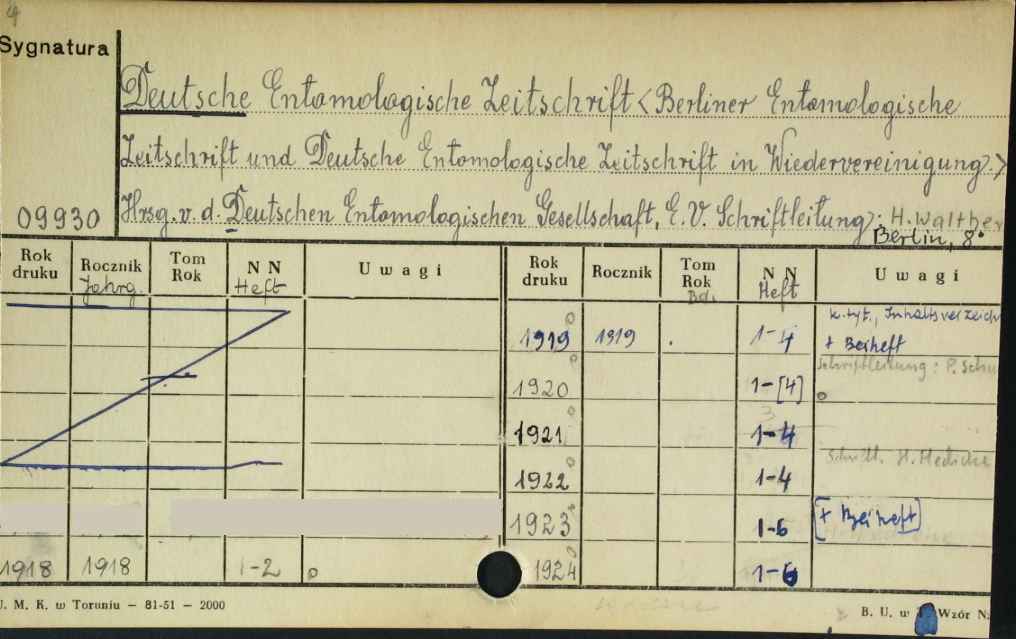 4
Sygnatura
Deutsche Entomologische Zeitschrift <Berliner Entomologische
Zeitschrift und Deutsche Entomologische Zeitschrift in Wiedervereinigung.>
09930 Hrsg. v. d. Deutschen Entomologischen Gesellschaft, E.V. Schriftleitung: H. Walther
Berlin, 8°
Rok druku Rocznik Jahrg. Tom Rok N N Heft Uwagi Rok druku Rocznik Tom Rok Bd. N N Heft Uwagi
1919 1919 . 1-4 K. tyt., Inhaltsverzeich
+ Beiheft
Schriftleitung: P. Schu
1920 1-[4]
3
1921 1-4
Schriftl. H. Hedicke
1922 1-4
1923 1-6 [+ Beiheft]
1918 1918 1-2 1924 1-6
U. M. K. w Toruniu — 81-51 — 2000
B. U. w Wzór N